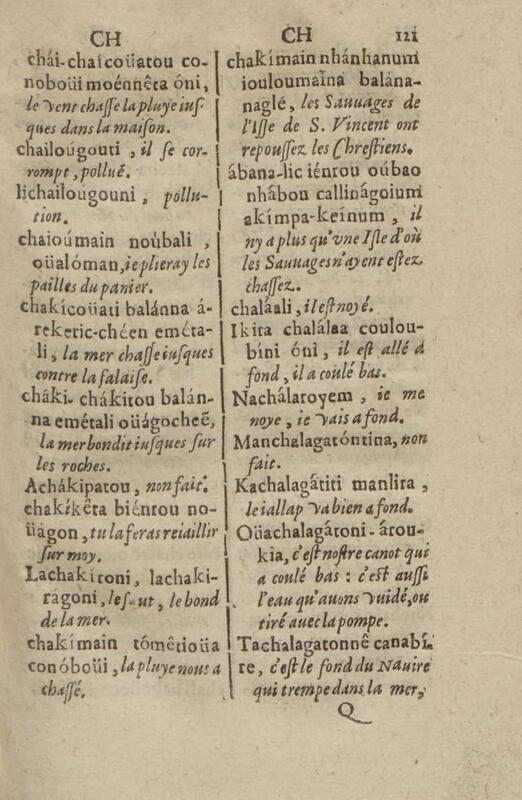 CH
chái-chaícoüatou co-
noboüi moénnêta óni,
le vent chasse la pluye ius
ques dans la maison.
chailoúgouti, il se cor-
rompt, polluẽ.
lichailougouni, pollu-
tion.
chaioúmain noúbali,
oüalóman, ie plieray les
pailles du panier.
chakícoüati balánna á-
rekeric-chéen eméta-
li, la mer chasse iusques
contre la falaise.
cháki-chákitou balán-
na emétali oüágocheẽ,
la mer bondit iusques sur
les roches.
Achákipatou, non fait.
chakíkêta biénrou no-
üagon, tu la feras reiaillir
sur moy.
Lachakíroni, lachaki-
ragoni, le ut, le bond
de la mer.
chakímain tómêtioüa
conóboüi, la pluye nous a
chassé.
CH 121
chakímain nhánhanum
iouloumaĩna balána-
naglé, les Sauuages de
l'Isle de S. Vincent ont
repoussez les Chrestiens.
ábana-lic iénrou oúbao
nhábou callinágoium
akímpa-keínum, il
ny a plus qu'vne Isle d'où
les Sauuages n'ayent estez
chassez.
chaláali, il est noyé.
Ikíta chalálaa coulou-
bíni óni, il est allé a
fond, il a coulé bas.
Nachálaroyem, ie me
noye, ie vais a fond.
Manchalagatóntina, non
fait.
Kachalagátiti manlira,
le iallap va bien a fond.
Oüachalagátoni-árou-
kia, c'est nostre canot qui
a coulé bas : c'est aussi
l'eau qu'auons vuidé, ou
tiré auec la pompe.
Tachalagatonnê canabí-
re, c'est le fond du Nauire
qui trempe dans la mer,
Q